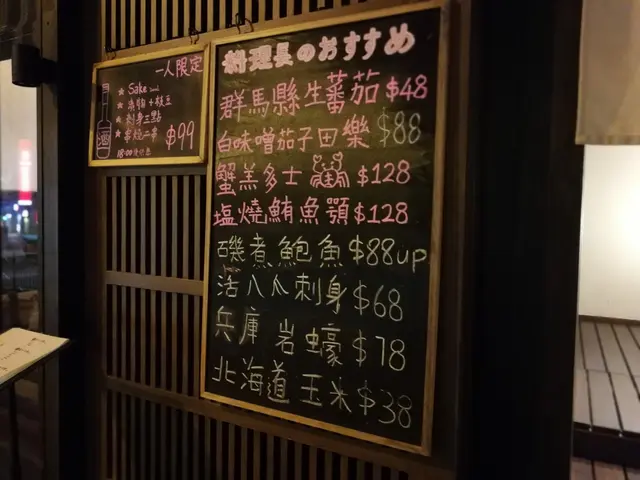 一人限定
★ Sake
★ 漬物+枝豆
★ 刺身三點
★ 串燒二串 $99
酒
料理長のおすすめ
群馬縣生蕃茄 $48
白味噌茄子田樂 $88
蟹羔多士 $128
塩燒鮪魚顎 $128
磯煮鮑魚 $88up
活八爪刺身 $68
兵庫 岩蠔 $78
北海道玉米 $38